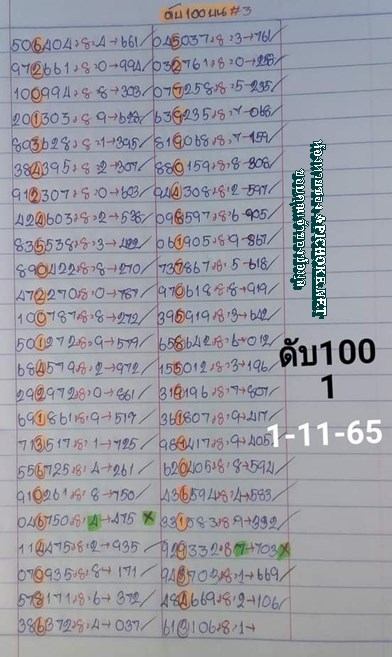 ดับ100บน#3
506404:8:4→661/
972661:8:0→994/
100994:8:8→303/
201303:8:9→628/
893628:8:1→395/
384395:8:2→307/
912307:8:0→603/
424603:8:2→538/
835538:8:3→422/
890422:8:8→270/
472270:8:0→787/
100787:8:8→272/
501272:8:9→579/
684579:8:2→972/
292972:8:0→861/
691861:8:9→517/
713517:8:1→725/
556725:8:4→261/
910261:8:8→750/
046750:8:4→475 x
114475:8:2→935/
070935:8:8→171/
578171:8:6→372/
386372:8:4→037/
045037:8:3→761/
032761:8:0→258/
077258:8:5→235/
639235:8:7→068/
819068:8:7→159/
880159:8:8→308/
944308:8:2→597/
098597:8:6→905/
061905:8:9→867/
737867:8:5→618/
970618:8:8→919/
395919:8:3→642/
658642:8:6→012/
155012:8:3→196/
319196:8:7→807/
361807:8:9→417/
981417:8:9→405/
620405:8:8→594/
436594:8:4→583/
331583:8:9→332/
929332:8:7→703 x
943703:8:1→669/
484669:8:2→106/
613106:8:1→
APICHOKE.NFT
ดับ100
1
1-11-65